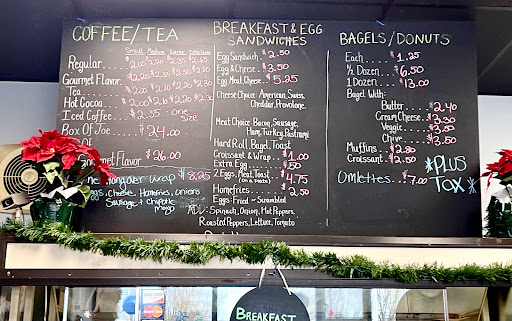 COFFEE/TEA
Small Medium Large Extra Large
Regular
Gourmet Flavor
Tea
Hot Cocoa
Iced Coffee One Size
Box Of Joe $24.00
Gourmet Flavor $26.00
Hangover Wrap $8.25
Eggs, Cheese, Homefries, Onions
Sausage + Chipotle mayo
BREAKFAST & EGG
SANDWICHES
Egg Sandwich $2.50
Egg & Cheese $3.50
Egg Meat Cheese $5.25
Cheese Choice: American, Swiss,
Cheddar, Provolone
Meat Choice: Bacon, Sausage,
Ham, Turkey, Pastrami
Hard Roll, Bagel, Toast
Croissant & Wrap $1.00
Extra Egg .50
2 Eggs, Meat, Toast $4.75
(on a plate)
Homefries 2.50
Eggs: Fried - Scrambled
ADD: Spinach, Onion, Hot Peppers
Roasted Peppers, Lettuce, Tomato
BAGELS/DONUTS
Each $1.25
½ Dozen $6.50
1 Dozen $13.00
Bagel With:
Butter $2.40
Cream Cheese $3.30
Veggie $3.50
Chive $3.50
Muffins $2.80
Croissant $2.50
Omlettes $7.00
*PLUS
TAX*
BREAKFAST